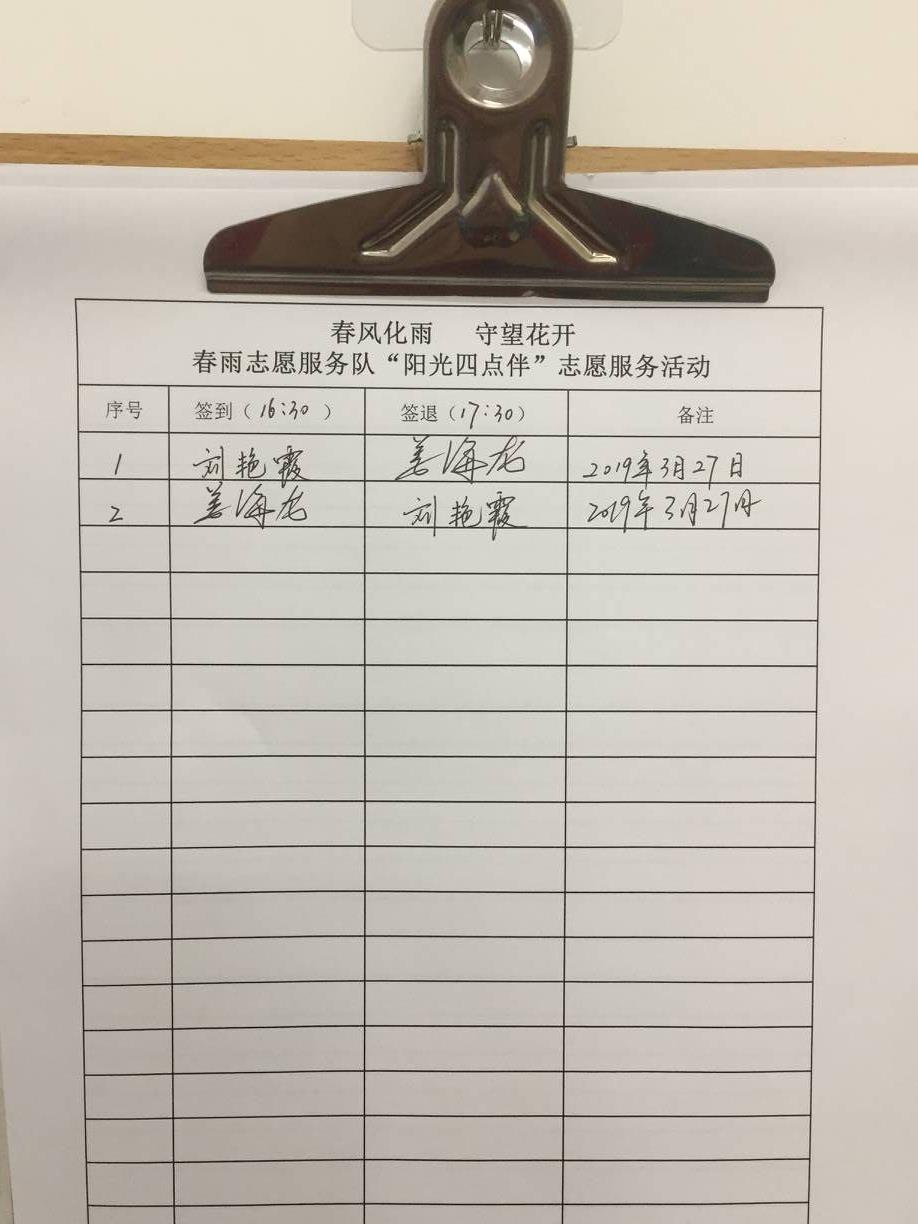 春风化雨 守望花开
春雨志愿服务队“阳光四点伴”志愿服务活动
序号 签到（16:30） 签退（17:30） 备注
1 刘艳霞 姜海龙 2019年3月27日
2 姜海龙 刘艳霞 2019年3月27日